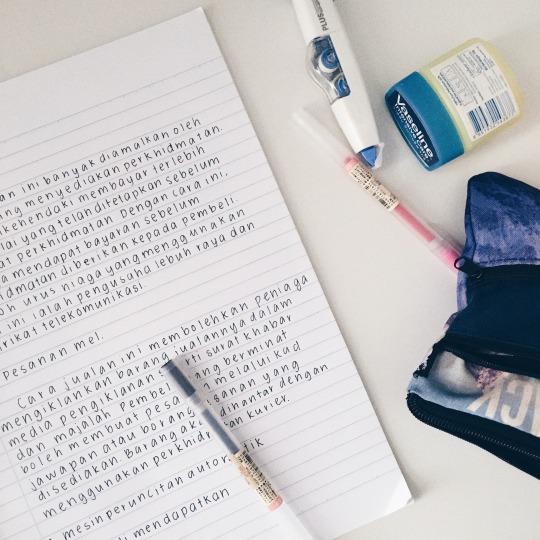 an ini banyak diamalkan oleh
ang menyediakan perkhidmatan.
ikehendaki membayar terlebih
lai yang telah ditetapkan sebelum
at perkhidmatan. Dengan cara ini,
a mendapat bayaran sebelum
idmatan diberikan kepada pembeli.
oh urus niaga yang menggunakan
ini ialah pengusaha lebuh raya dan
arikat telekomunikasi.
Pesanan mel.
Cara jualan ini membolehkan peniaga
mengiklankan barang jualannya dalam
media pengiklanan rti surat khabar
dan majalah. Pembel ang berminat
boleh membuat pesa melalui kad
jawapan atau borang sanan yang
disediakan. Barang ak dihantar dengan
menggunakan perkhid tan kurier.
mesin peruncitan autom tik
mendapatkan
PLUS
Vaseline
Intensive Care
CK